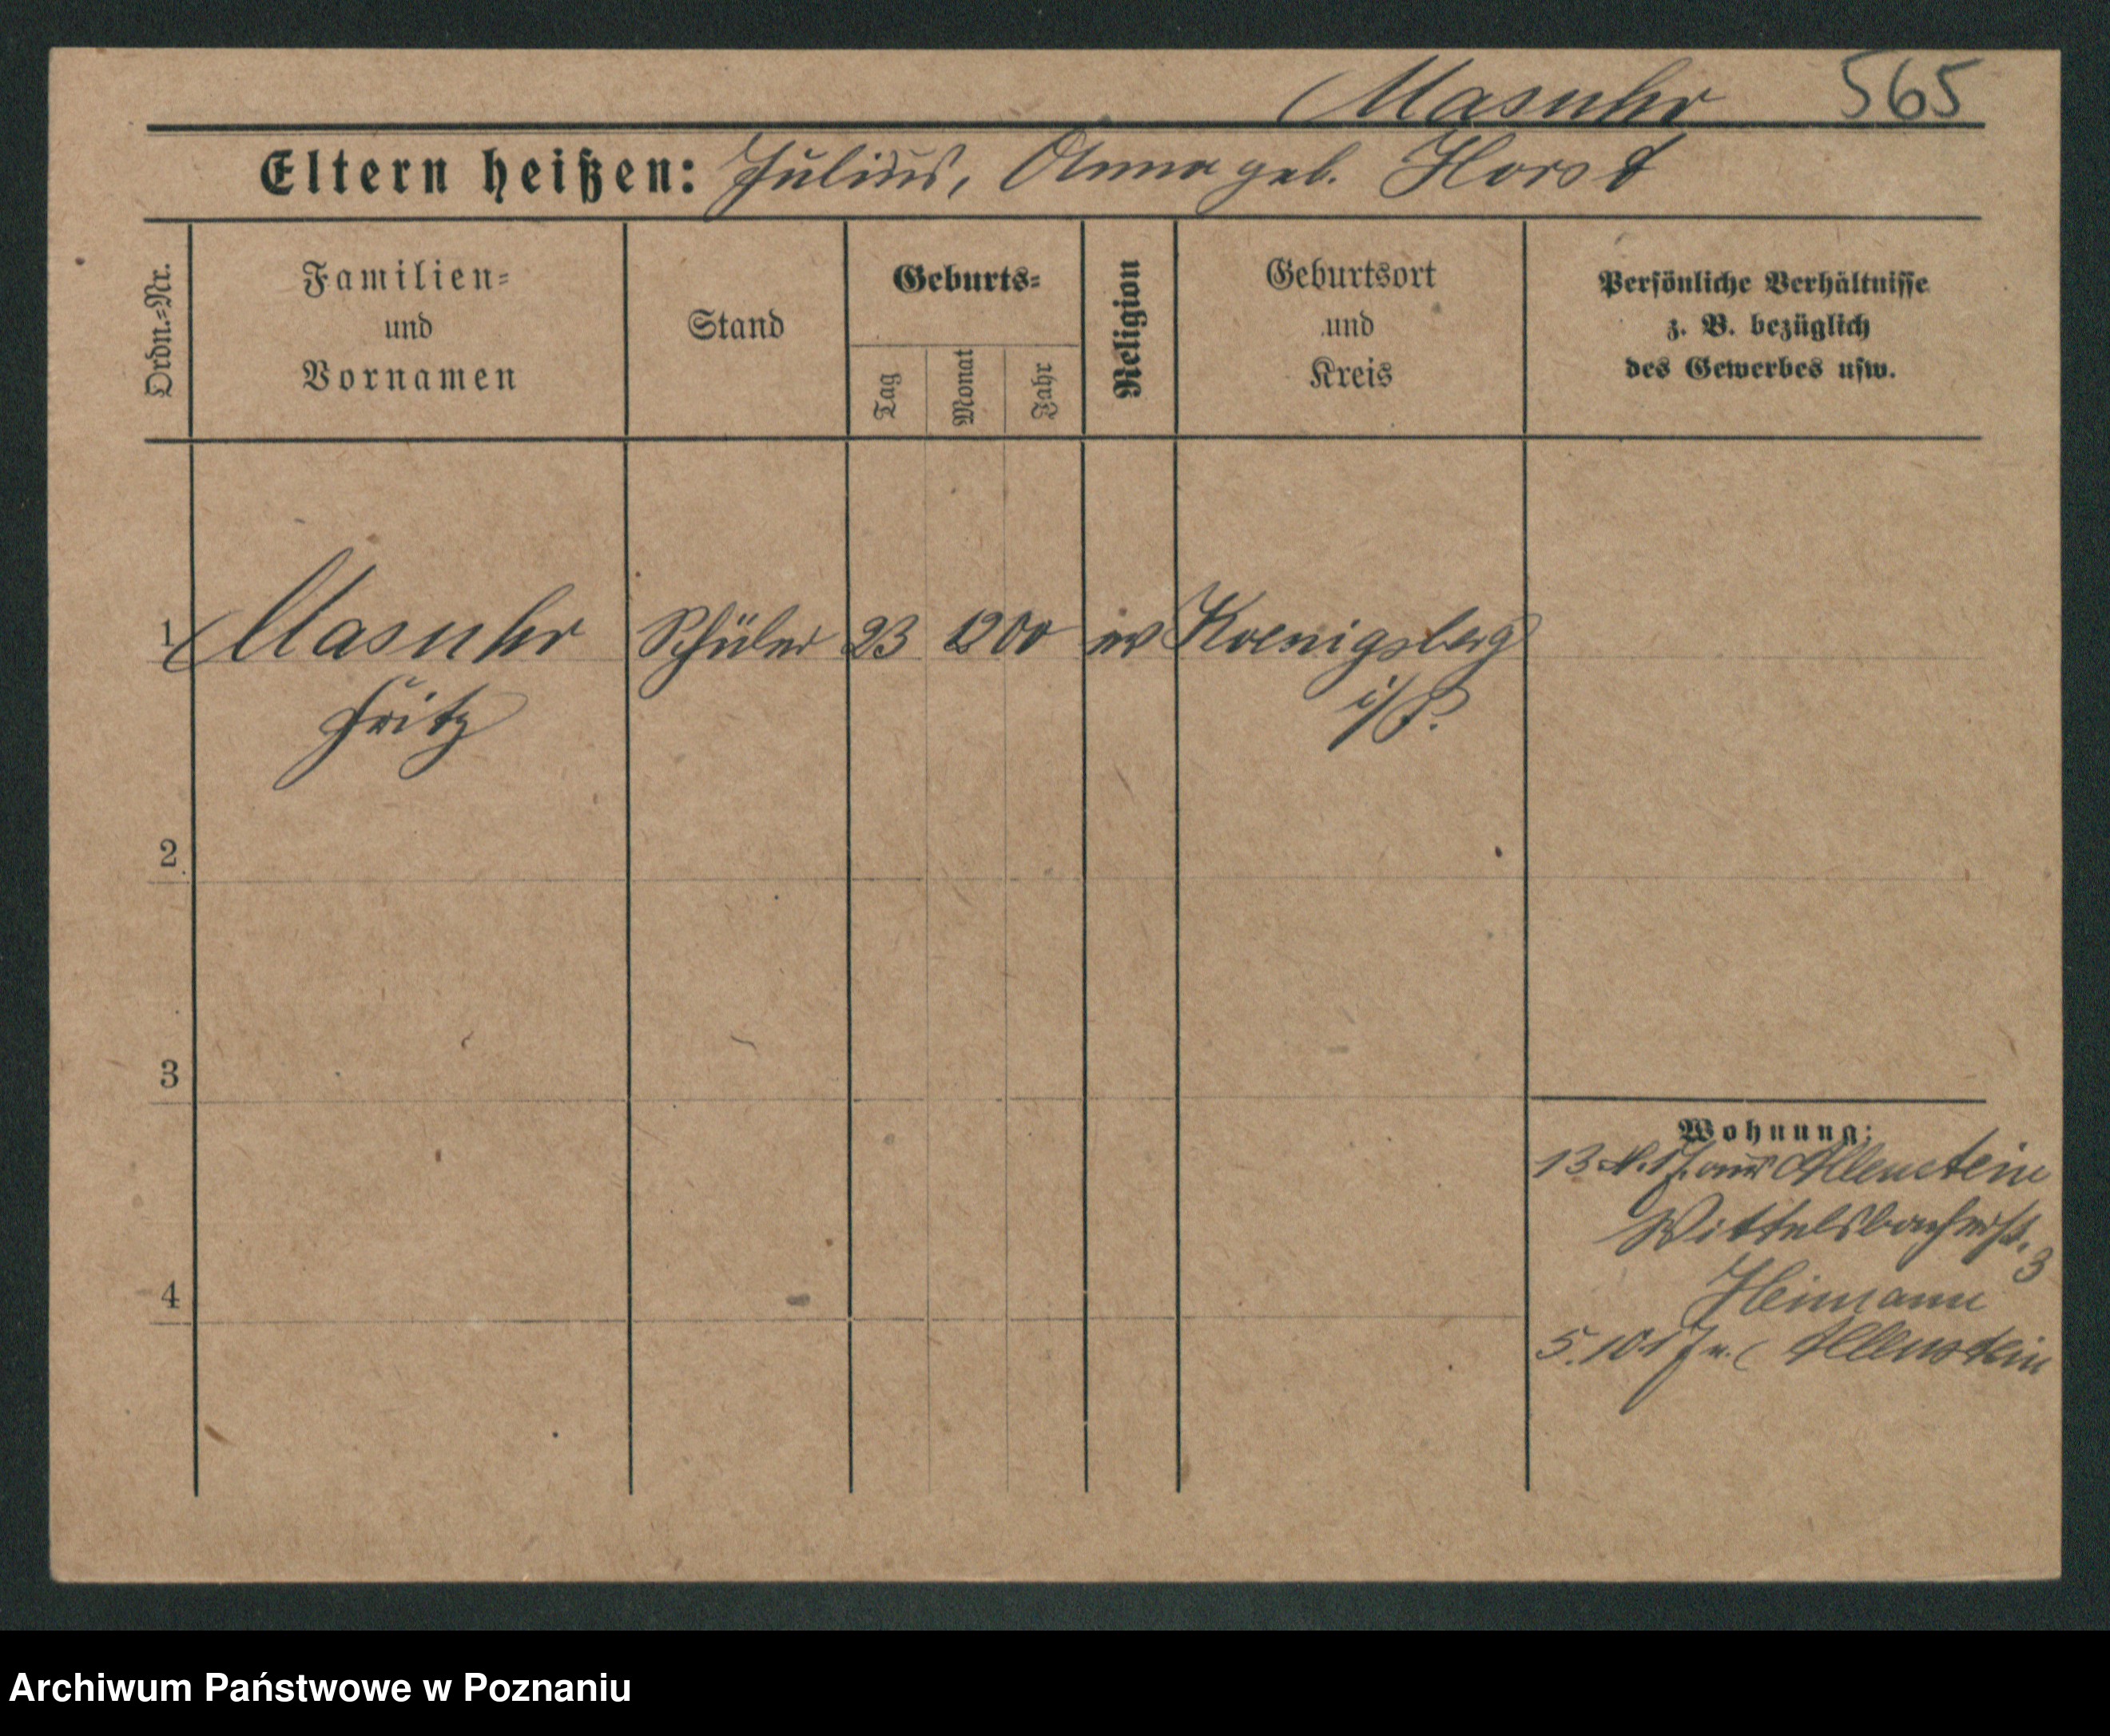 Masuhr 565
Eltern heißen: Julius, Anna geb. Horst
Ordn.=Nr.
Familien=
und
Vornamen
Stand
Geburts=
Tag
Monat
Jahr
Religion
Geburtsort
und
Kreis
Persönliche Verhältnisse
z. B. bezüglich
des Gewerbes usw.
1 Masuhr Schüler 23 12 00 ev Koenigsberg
Fritz i/P.
2
3
4
Wohnung:
13.4.17. aus Allenstein
Wittelsbacherst. 3
Heimann
5.10.17 n. Allenstein
Archiwum Państwowe w Poznaniu